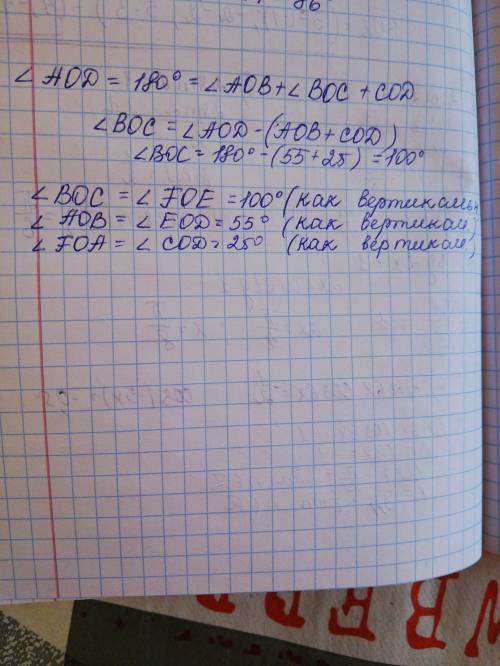 ∠ AOD = 180° = ∠ AOB + ∠ BOC + COD
∠BOC = ∠AOD - (AOB + COD)
∠BOC = 180° - (55 + 25) = 100°
∠ BOC = ∠ FOE = 100° (как вертикальн
∠ AOB = ∠ EOD = 55° (как вертикал)
∠ FOA = ∠ COD = 25° (как вертикал)